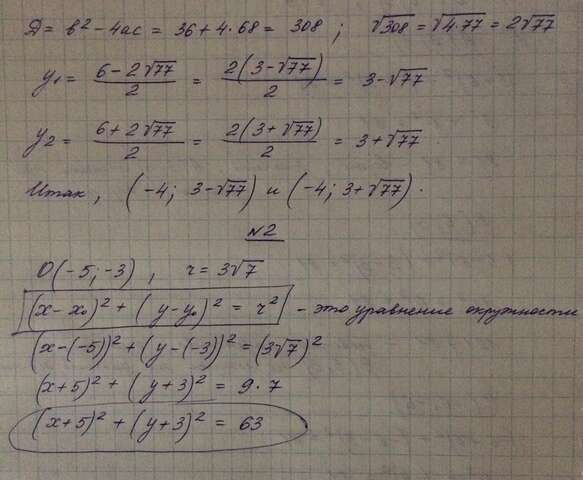 D = b² - 4ac = 36 + 4·68 = 308; √308 = √4·77 = 2√77
y₁ = (6 - 2√77)/2 = 2(3 - √77)/2 = 3 - √77
y₂ = (6 + 2√77)/2 = 2(3 + √77)/2 = 3 + √77
Итак, (-4; 3-√77) и (-4; 3+√77).
N2
O(-5; -3), r = 3√7
(x - x₀)² + (y - y₀)² = r² - это уравнение окружности
(x - (-5))² + (y - (-3))² = (3√7)²
(x+5)² + (y+3)² = 9·7
(x+5)² + (y+3)² = 63